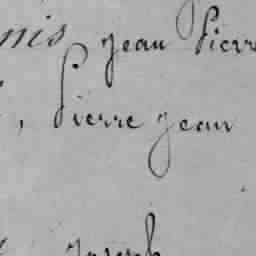 nis Jean Pierre
, Pierre Jean
Joseph